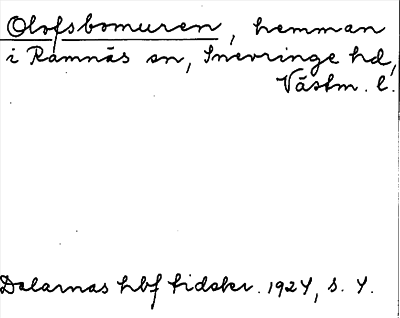 Olofsbomuren, hemman
i Ramnäs sn, Snevringe hd,
Västm. l.
Dalarnas hbf tidskr. 1924, s. 4.